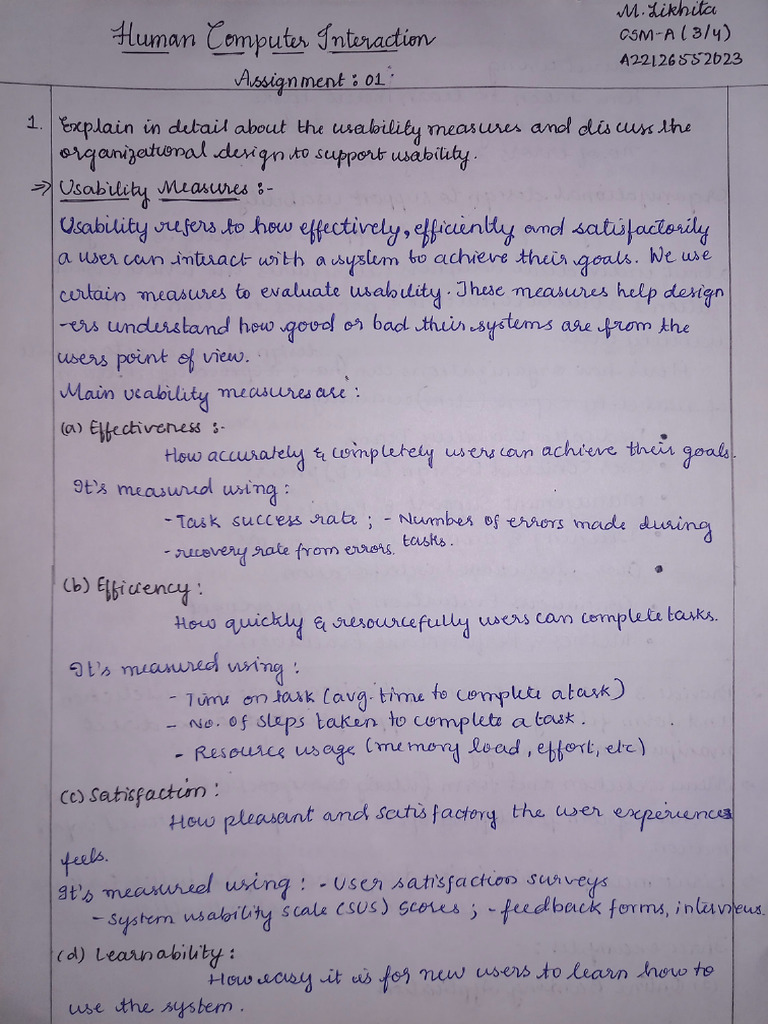 M. Likhita
Human Computer Interaction
CSM-A (3/4)
A22126552023
Assignment: 01:
1. Explain in detail about the usability measures and discuss the
organizational design to support usability.
⇒ Usability Measures :-
Usability refers to how effectively, efficiently and satisfactorily
a user can interact with a system to achieve their goals. We use
certain measures to evaluate usability. These measures help design
-ers understand how good or bad their systems are from the
users point of view.
Main usability measures are:
(a) Effectiveness :-
How accurately & completely users can achieve their goals.
It's measured using:
- Task success rate ; - Number of errors made during
tasks.
- recovery rate from errors.
(b) Efficiency:
How quickly & resourcefully users can complete tasks.
It's measured using:
- Time on task (avg. time to complete a task)
- No. of steps taken to complete a task.
- Resource usage (memory load, effort, etc)
(c) Satisfaction:
How pleasant and satisfactory the user experiences
feels.
It's measured using: - User satisfaction surveys
- System usability scale (SUS) scores ; - feedback forms, interviews.
(d) Learnability:
How easy it is for new users to learn how to
use the system.